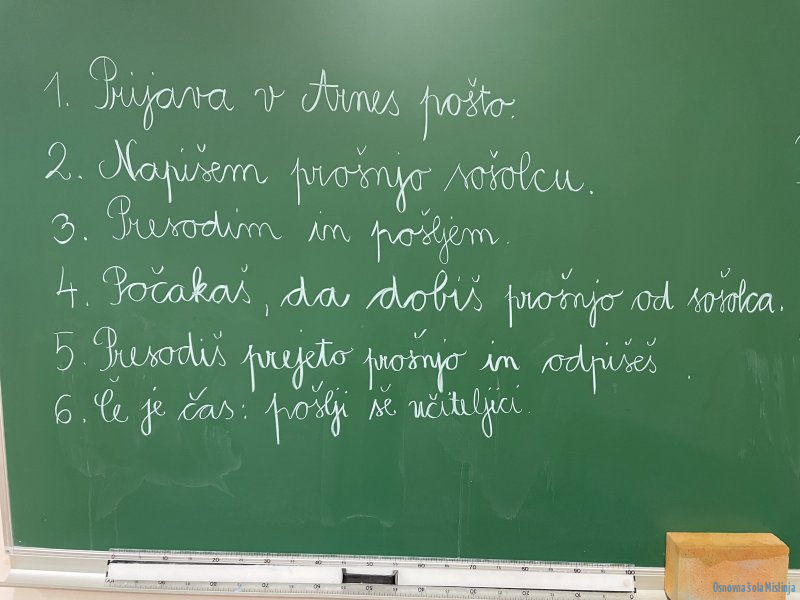 1. Prijava v Arnes pošto.
2. Napišem prošnjo sošolcu.
3. Presodim in pošljem.
4. Počakaš, da dobiš prošnjo od sošolca.
5. Presodiš prejeto prošnjo in odpišeš.
6. Če je čas: pošlji še učiteljici.
Osnovna Šola Mislinja